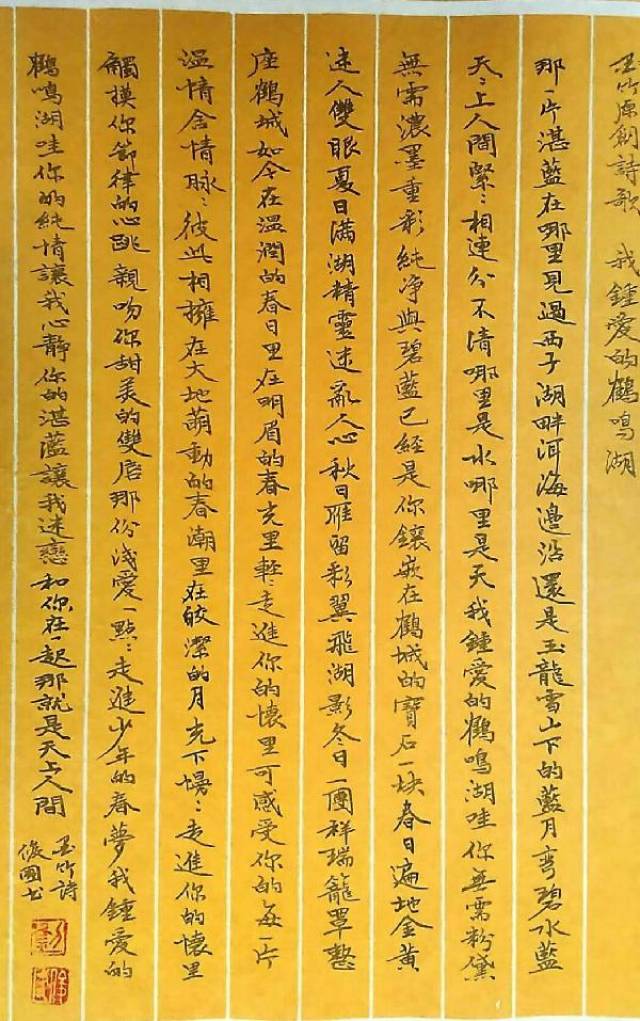 墨竹原創詩歌 我鍾愛的鶴鳴湖
那一片湛藍在哪里見過西子湖畔洱海邊沿還是玉龍雪山下的藍月彎碧水藍
天〻上人間緊〻相連分不清哪里是水哪里是天我鍾愛的鶴鳴湖哇你無需粉黛
無需濃墨重彩純净與碧藍已經是你鑲嵌在鶴城的寶石一块春日遍地金黄
迷人雙眼夏日满湖精靈迷亂人心秋日雁留彩翼飛湖影冬日一團祥瑞籠罩整
座鶴城如今在温潤的春日里在明眉的春光里輕〻走進你的懷里可感受你的每一片
温情含情脉〻彼此相擁在大地萌動的春潮里在皎潔的月光下慢〻走進你的懷里
觸摸你節律的心跳親吻你甜美的雙唇那份浅愛一點〻走進少年的春夢我鍾愛的
鶴鳴湖哇你的純情讓我心靜你的湛藍讓我迷戀和你在一起那就是天上人間
墨竹詩
俊國书